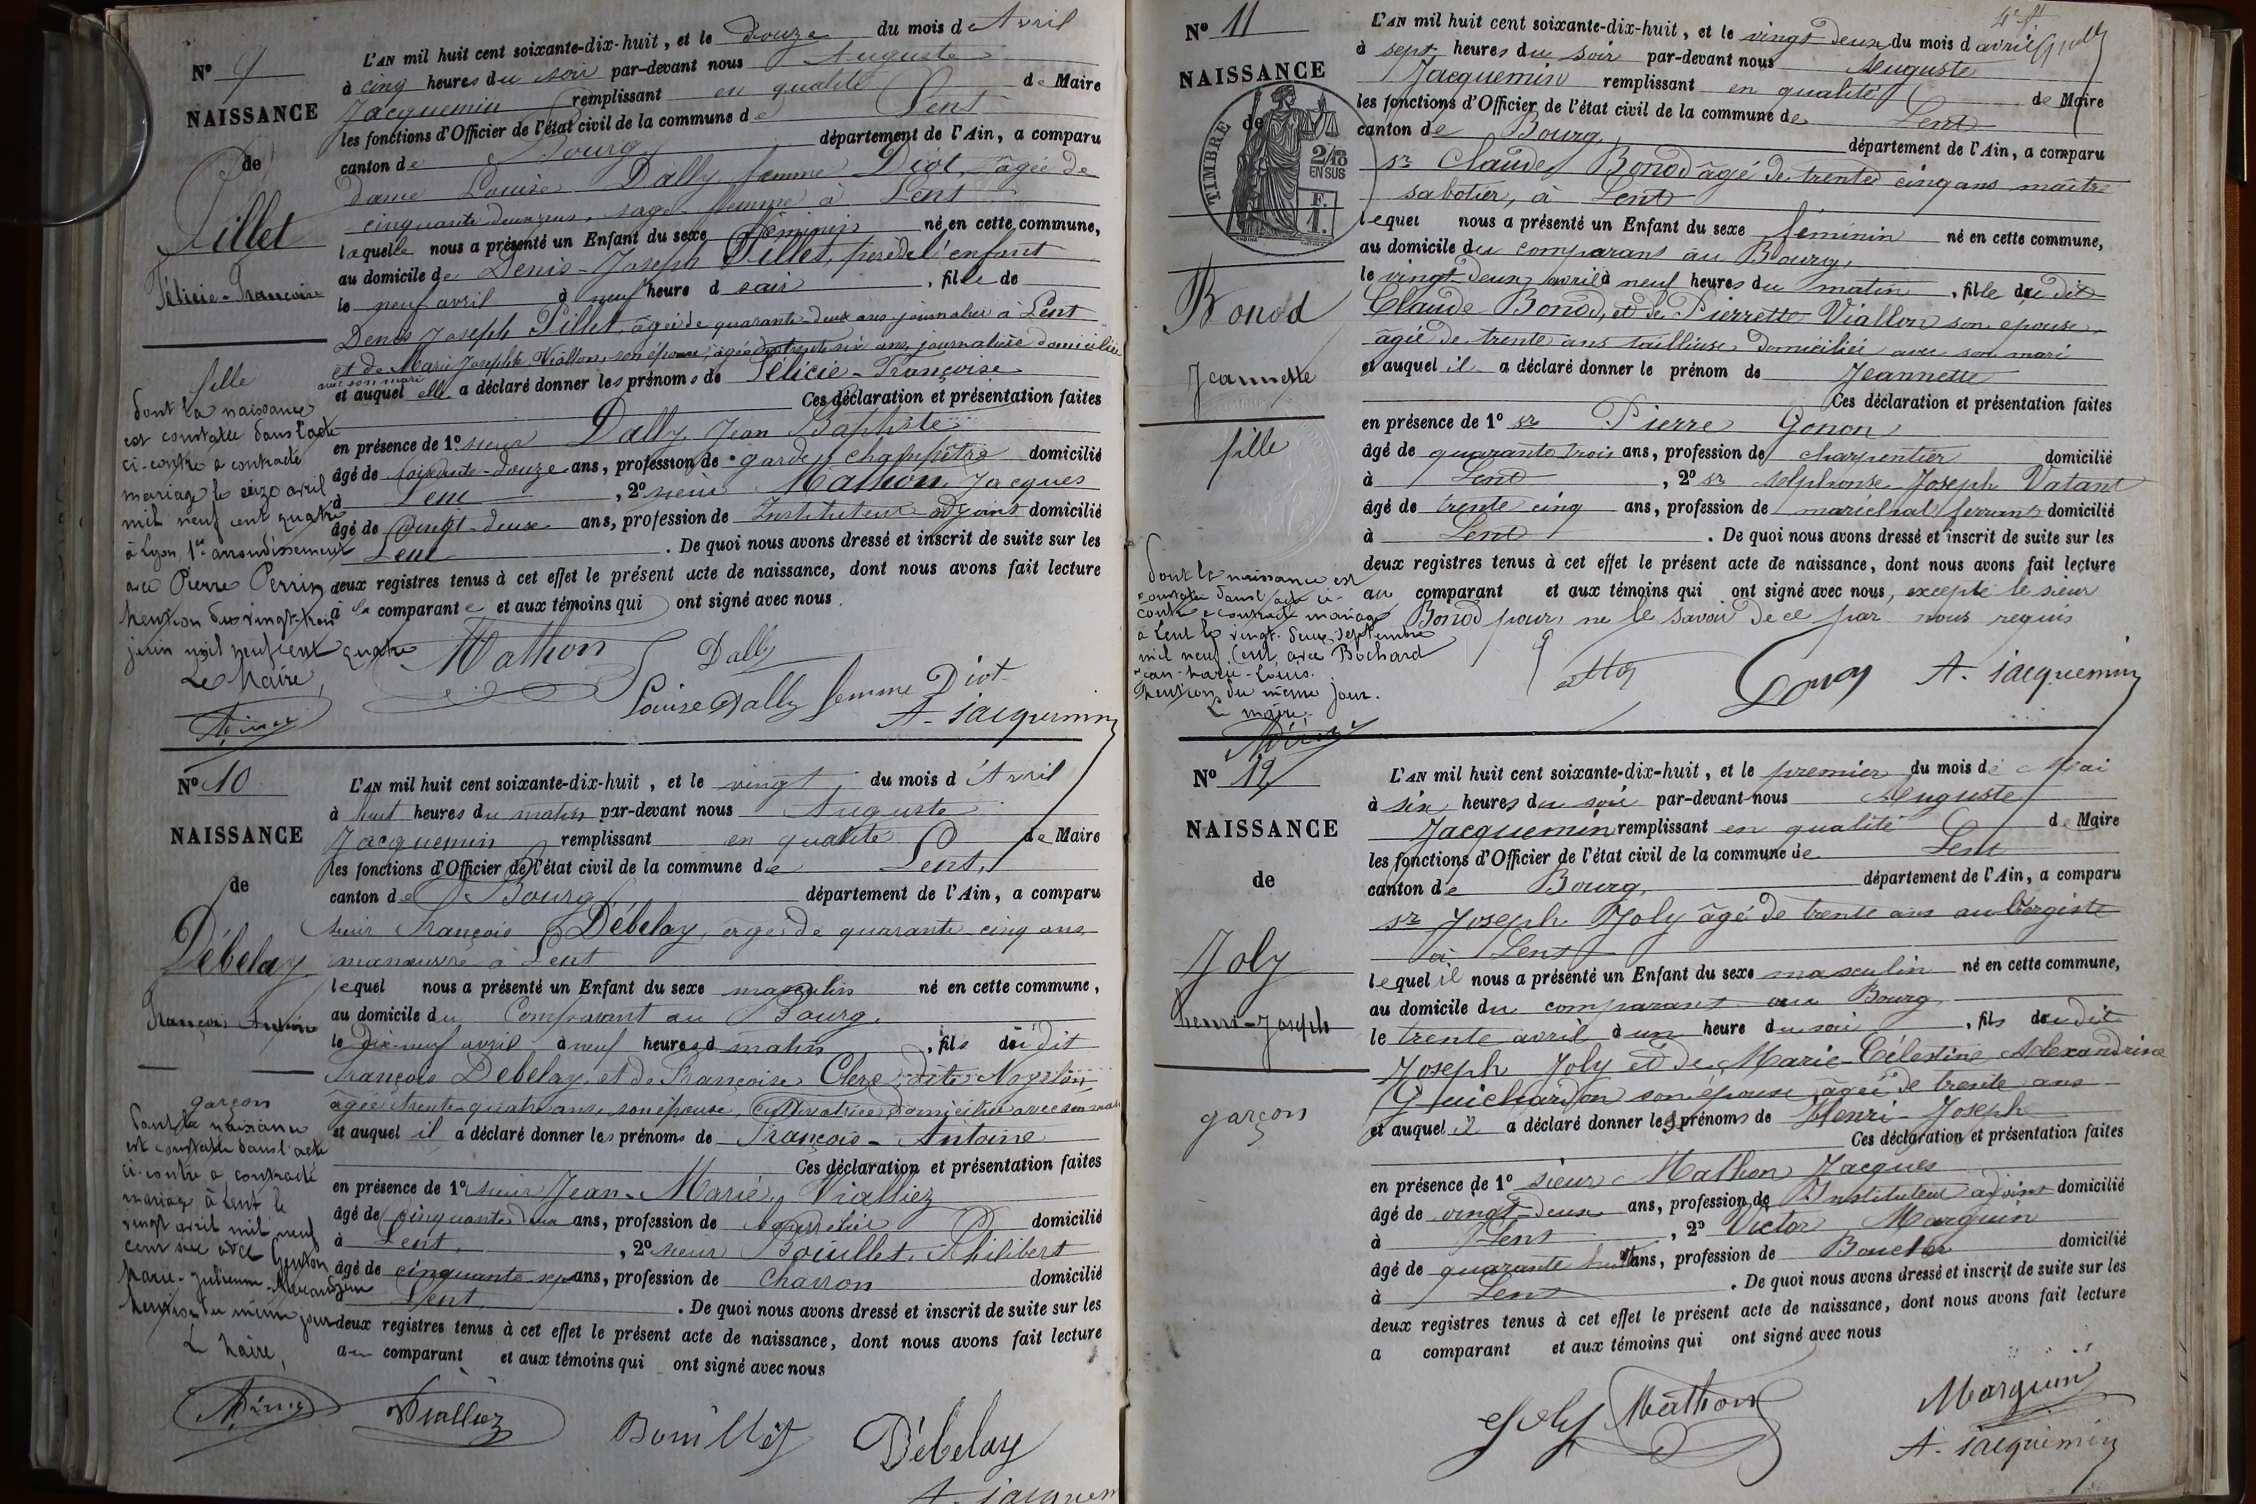 N° 9
NAISSANCE
de
Pillet
Félicie-Françoise
fille
dont la naissance
est constatée dans l'acte
ci-contre a contracté
mariage le seize avril
mil neuf cent quatre
à Lyon, 1er arrondissement
avec Pierre Perrin
Mention du vingt-trois
juin mil neuf cent quatre
Le Maire,
L'AN mil huit cent soixante-dix-huit, et le douze du mois d'Avril
à cinq heures du soir par-devant nous Auguste
Jacquemin remplissant en qualité de Maire
les fonctions d'Officier de l'état civil de la commune de Lent
canton de Bourg département de l'Ain, a comparu
dame Louise Dally femme Diot, âgée de
cinquante deux ans, sage-femme à Lent
laquelle nous a présenté un Enfant du sexe féminin né en cette commune,
au domicile de Denis-Joseph Pillet, père de l'enfant
le neuf avril à neuf heure d soir, fille de
Denis Joseph Pillet, âgé de quarante-deux ans journalier à Lent
et de Marie Josephte Viallon, son épouse, âgée de trente six ans, journalière domiciliée
avec son mari
et auquel elle a déclaré donner les prénoms de Félicie-Françoise
Ces déclaration et présentation faites
en présence de 1° sieur Dally Jean Baptiste
âgé de soixante-douze ans, profession de garde champêtre domicilié
à Lent, 2° sieur Mathon Jacques
âgé de vingt-deux ans, profession de Instituteur adjoint domicilié
Lent. De quoi nous avons dressé et inscrit de suite sur les
deux registres tenus à cet effet le présent acte de naissance, dont nous avons fait lecture
à la comparante et aux témoins qui ont signé avec nous.
Mathon Dally
Louise Dally femme Diot
A. Jacquemin
N° 10
NAISSANCE
de
Débelay
François Antoine
garçon
Dont la naissance
est constatée dans l'acte
ci-contre a contracté
mariage à Lent le
vingt avril mil neuf
cent six avec
Marie-Julienne-Alexandrine
Mention du même jour
Le Maire,
L'AN mil huit cent soixante-dix-huit, et le vingt du mois d'Avril
à huit heures du matin par-devant nous Auguste
Jacquemin remplissant en qualité de Maire
les fonctions d'Officier de l'état civil de la commune de Lent,
canton de Bourg département de l'Ain, a comparu
sieur François Débelay, âgé de quarante-cinq ans
manœuvre à Lent
lequel nous a présenté un Enfant du sexe masculin né en cette commune,
au domicile du Comparant au Bourg.
le Dix-neuf avril à neuf heures d matin, fils du dit
François Débelay et de Françoise Clerc dite
âgée de trente-quatre ans son épouse, cultivatrice domiciliée avec son mari
et auquel il a déclaré donner les prénoms de François-Antoine
Ces déclaration et présentation faites
en présence de 1° sieur Jean-Marie Vialliez
âgé de cinquante deux ans, profession de bourrelier domicilié
à Lent, 2° sieur Bouillet Philibert
âgé de cinquante-sept ans, profession de charron domicilié
Lent. De quoi nous avons dressé et inscrit de suite sur les
deux registres tenus à cet effet le présent acte de naissance, dont nous avons fait lecture
au comparant et aux témoins qui ont signé avec nous
Vialliez Bouillet Débelay
A. Jacquem
N° 11
NAISSANCE
de
TIMBRE
2/10
EN SUS
F.
1.
Bonod
Jeannette
fille
Dont la naissance est
constatée dans l'acte ci-
contre a contracté mariage
à Lent le vingt-deux septembre
mil neuf cent, avec Bochard
Jean-Marie-Louis.
Mention du même jour.
Le maire,
L'AN mil huit cent soixante-dix-huit, et le vingt deux du mois d avril
à sept heures du soir par-devant nous Auguste
Jacquemin remplissant en qualité de Maire
les fonctions d'Officier de l'état civil de la commune de Lent
canton de Bourg, département de l'Ain, a comparu
sr Claude Bonod âgé de trente cinq ans maître
sabotier, à Lent
lequel nous a présenté un Enfant du sexe féminin né en cette commune,
au domicile du comparant au Bourg,
le vingt deux avril à neuf heures du matin, fille du dit
Claude Bonod, et de Pierrette Viallon son épouse,
âgée de trente ans tailleuse domiciliée avec son mari
et auquel il a déclaré donner le prénom de Jeannette
Ces déclaration et présentation faites
en présence de 1° sr Pierre Gonon
âgé de quarante trois ans, profession de charpentier domicilié
à Lent, 2° sr Alphonse Joseph Vatant
âgé de trente cinq ans, profession de maréchal ferrant domicilié
à Lent. De quoi nous avons dressé et inscrit de suite sur les
deux registres tenus à cet effet le présent acte de naissance, dont nous avons fait lecture
au comparant et aux témoins qui ont signé avec nous, excepté le sieur
Bonod pour ne le savoir de ce par nous requis
A. Jacquemin
N° 12
NAISSANCE
de
Joly
henri-Joseph
garçon
L'AN mil huit cent soixante-dix-huit, et le premier du mois de Mai
à six heures du soir par-devant nous Auguste
Jacquemin remplissant en qualité de Maire
les fonctions d'Officier de l'état civil de la commune de Lent
canton de Bourg, département de l'Ain, a comparu
sr Joseph Joly âgé de trente ans aubergiste
à Lent
lequel il nous a présenté un Enfant du sexe masculin né en cette commune,
au domicile du comparant au Bourg
le trente avril à un heure du soir, fils du dit
Joseph Joly et de Marie-Célestine Alexandrine
Guichardon son épouse âgée de trente ans
et auquel il a déclaré donner les prénoms de Henri-Joseph
Ces déclaration et présentation faites
en présence de 1° sieur Mathon Jacques
âgé de vingt-deux ans, profession de Instituteur adjoint domicilié
à Lent, 2° Victor Marguin
âgé de quarante huit ans, profession de Boucher domicilié
à Lent. De quoi nous avons dressé et inscrit de suite sur les
deux registres tenus à cet effet le présent acte de naissance, dont nous avons fait lecture
a comparant et aux témoins qui ont signé avec nous
Joly Mathon Marguin
A. Jacquemin